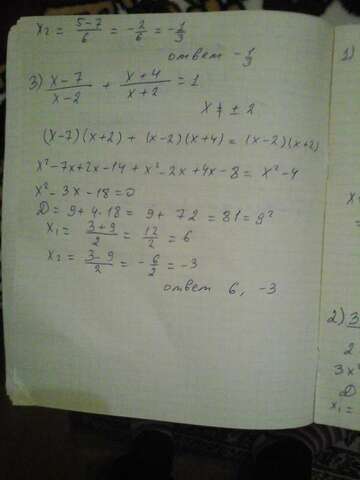 x₂ = (5-7)/6 = -2/6 = -1/3
ответ -1/3
3) (x-7)/(x-2) + (x+4)/(x+2) = 1
x ≠ ± 2
(x-7)(x+2) + (x-2)(x+4) = (x-2)(x+2)
x²-7x+2x-14 + x²-2x+4x-8 = x²-4
x²-3x-18=0
D = 9+4·18 = 9+72 = 81 = 9²
x₁ = (3+9)/2 = 12/2 = 6
x₂ = (3-9)/2 = -6/2 = -3
ответ 6, -3
1)
2) 3
2
3x²
D
x₁ =